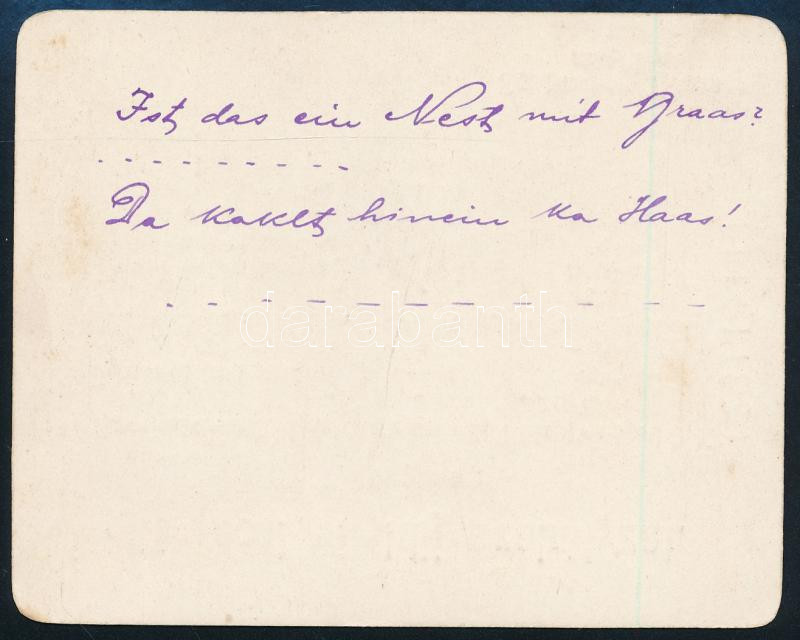 Ist das ein Nest mit Graas?
- - - - - - - - -
Da kaklt hinein ka Haas!
- - - - - - - - - - -
darabanth